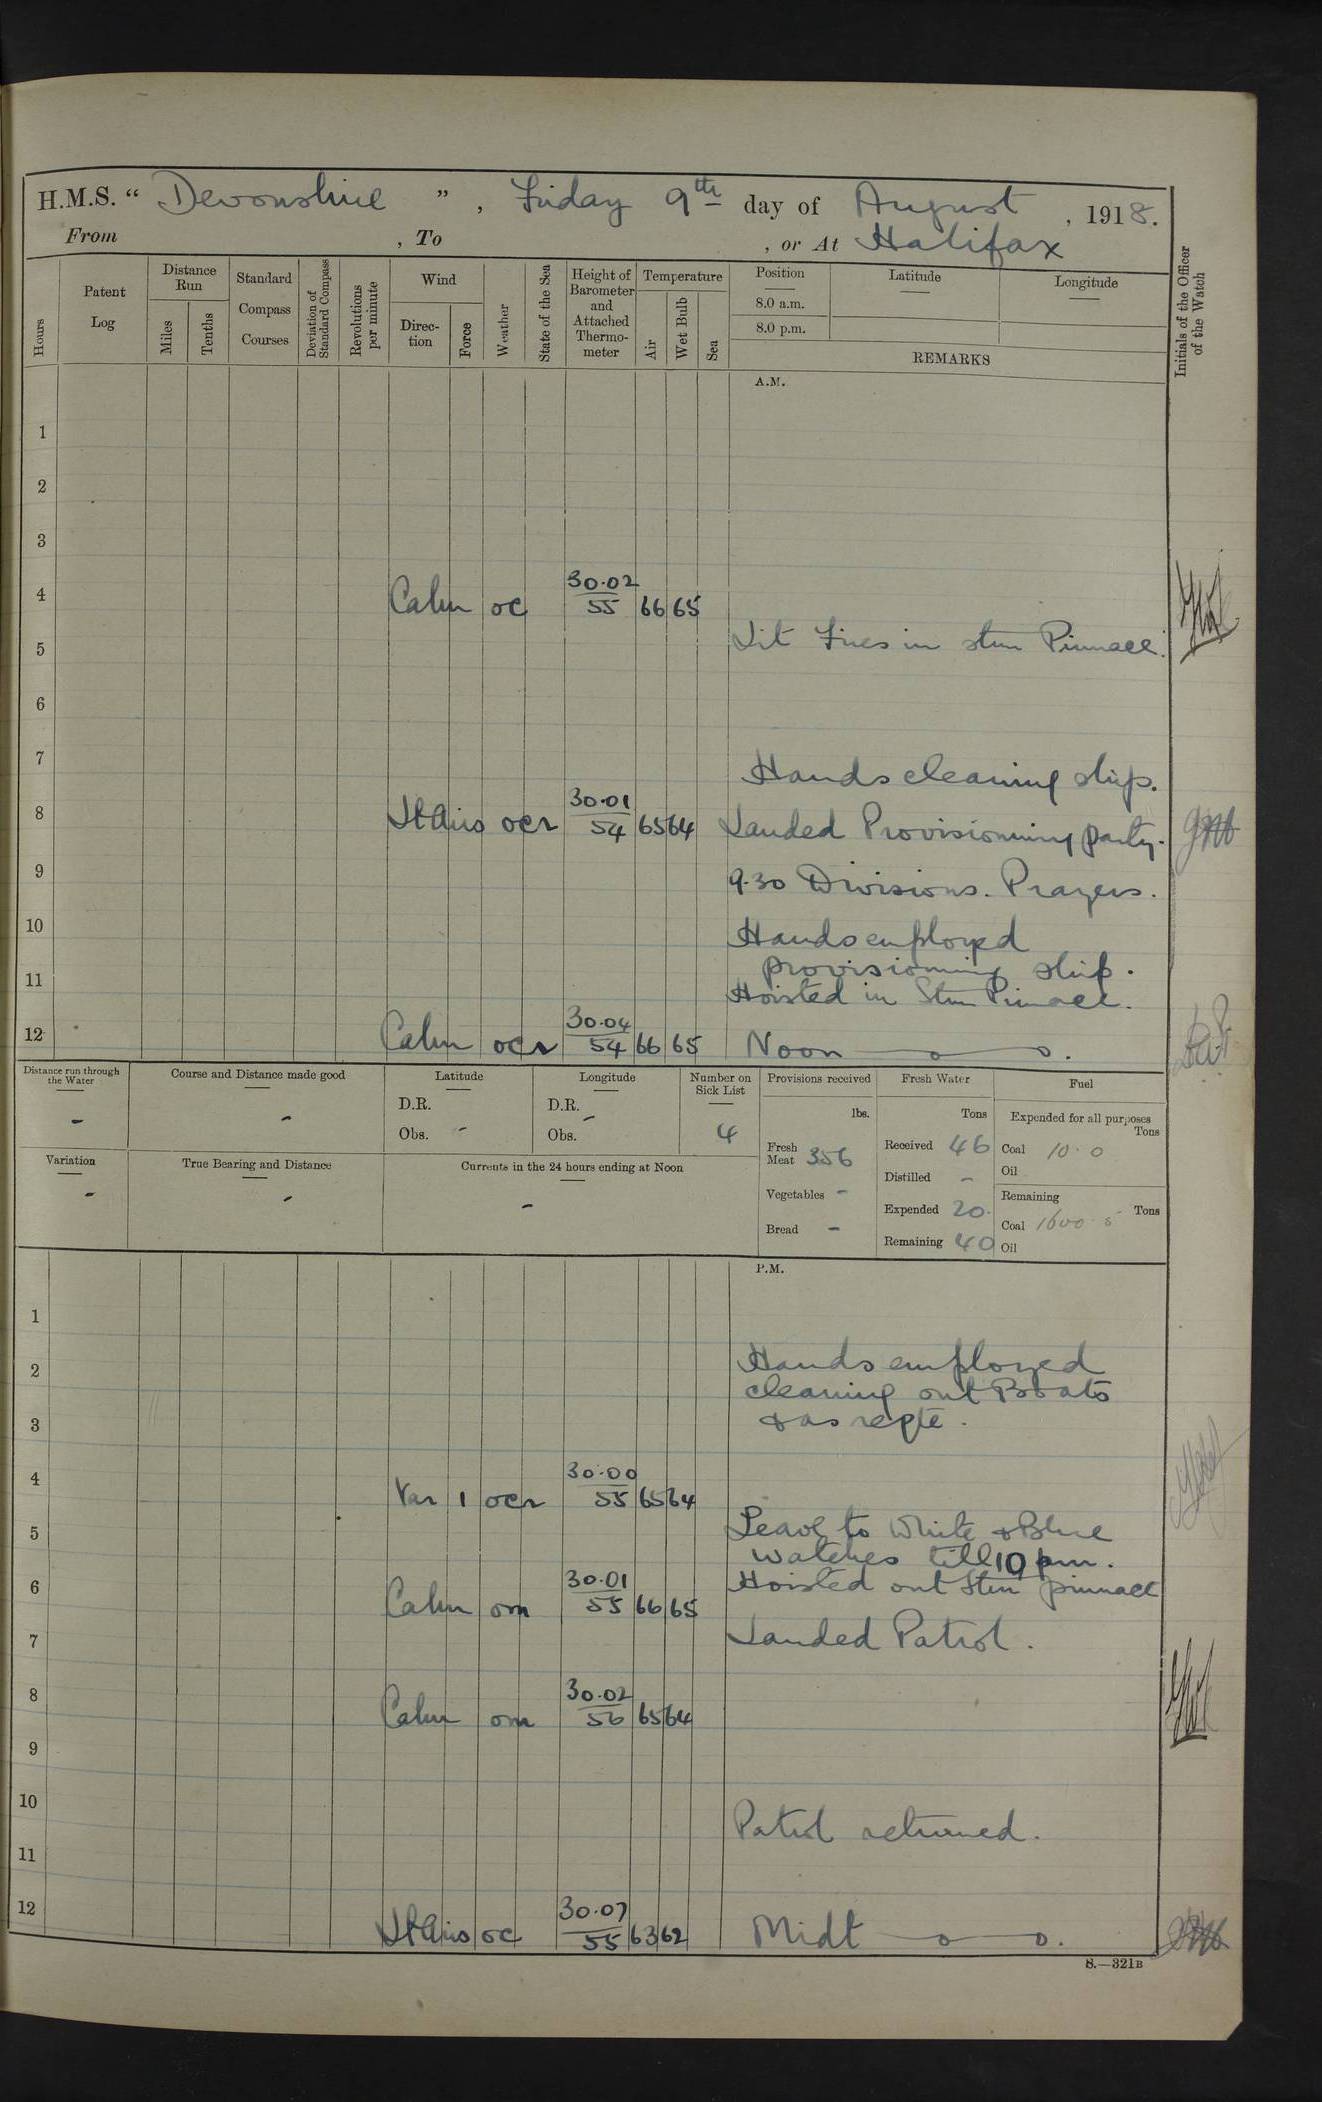 H.M.S. “ Devonshire ” , Friday 9th day of August , 1918.
From , To , or At Halifax
Hours
Patent Log
Distance Run
Miles
Tenths
Standard Compass Courses
Deviation of Standard Compass
Revolutions per minute
Wind
Direc-tion
Force
Weather
State of the Sea
Height of Barometer and Attached Thermo-meter
Temperature
Air
Wet Bulb
Sea
Position
8.0 a.m.
8.0 p.m.
Latitude
Longitude
REMARKS
Initials of the Officer of the Watch
A.M.
1
2
3
4 Calm oc 30.02 55 66 65
Lit Fires in stm Pinnace.
5
6
7
Hands cleaning ship.
8 Lt Airs ocr 30.01 54 65 64 Landed Provisioning party.
9
9.30 Divisions. Prayers.
10 Hands employed
provisioning ship.
11 Hoisted in Stm Pinnace.
12 Calm ocr 30.04 54 66 65 Noon — o — o.
Distance run through the Water -
Course and Distance made good -
Latitude
D.R.
Obs. -
Longitude
D.R. -
Obs.
Number on Sick List
4
Provisions received
lbs.
Fresh Meat 356
Vegetables -
Bread -
Fresh Water
Tons
Received 46
Distilled -
Expended 20.
Remaining 40
Fuel
Expended for all purposes
Tons
Coal 10.0
Oil
Remaining
Tons
Coal 1600.5
Oil
Variation -
True Bearing and Distance -
Currents in the 24 hours ending at Noon -
P.M.
1
2 Hands employed
cleaning out Boats
3 & as reqte.
4 Var 1 ocr 30.00 55 65 64
5 Leave to White & Blue
watches till 10 pm.
6 Calm om 30.01 55 66 65 Hoisted out Stm pinnace
7 Landed Patrol.
8 Calm om 30.02 56 65 64
9
10
Patrol returned.
11
12 Lt Airs oc 30.07 55 63 62 Midt — o — o.
S.—321B